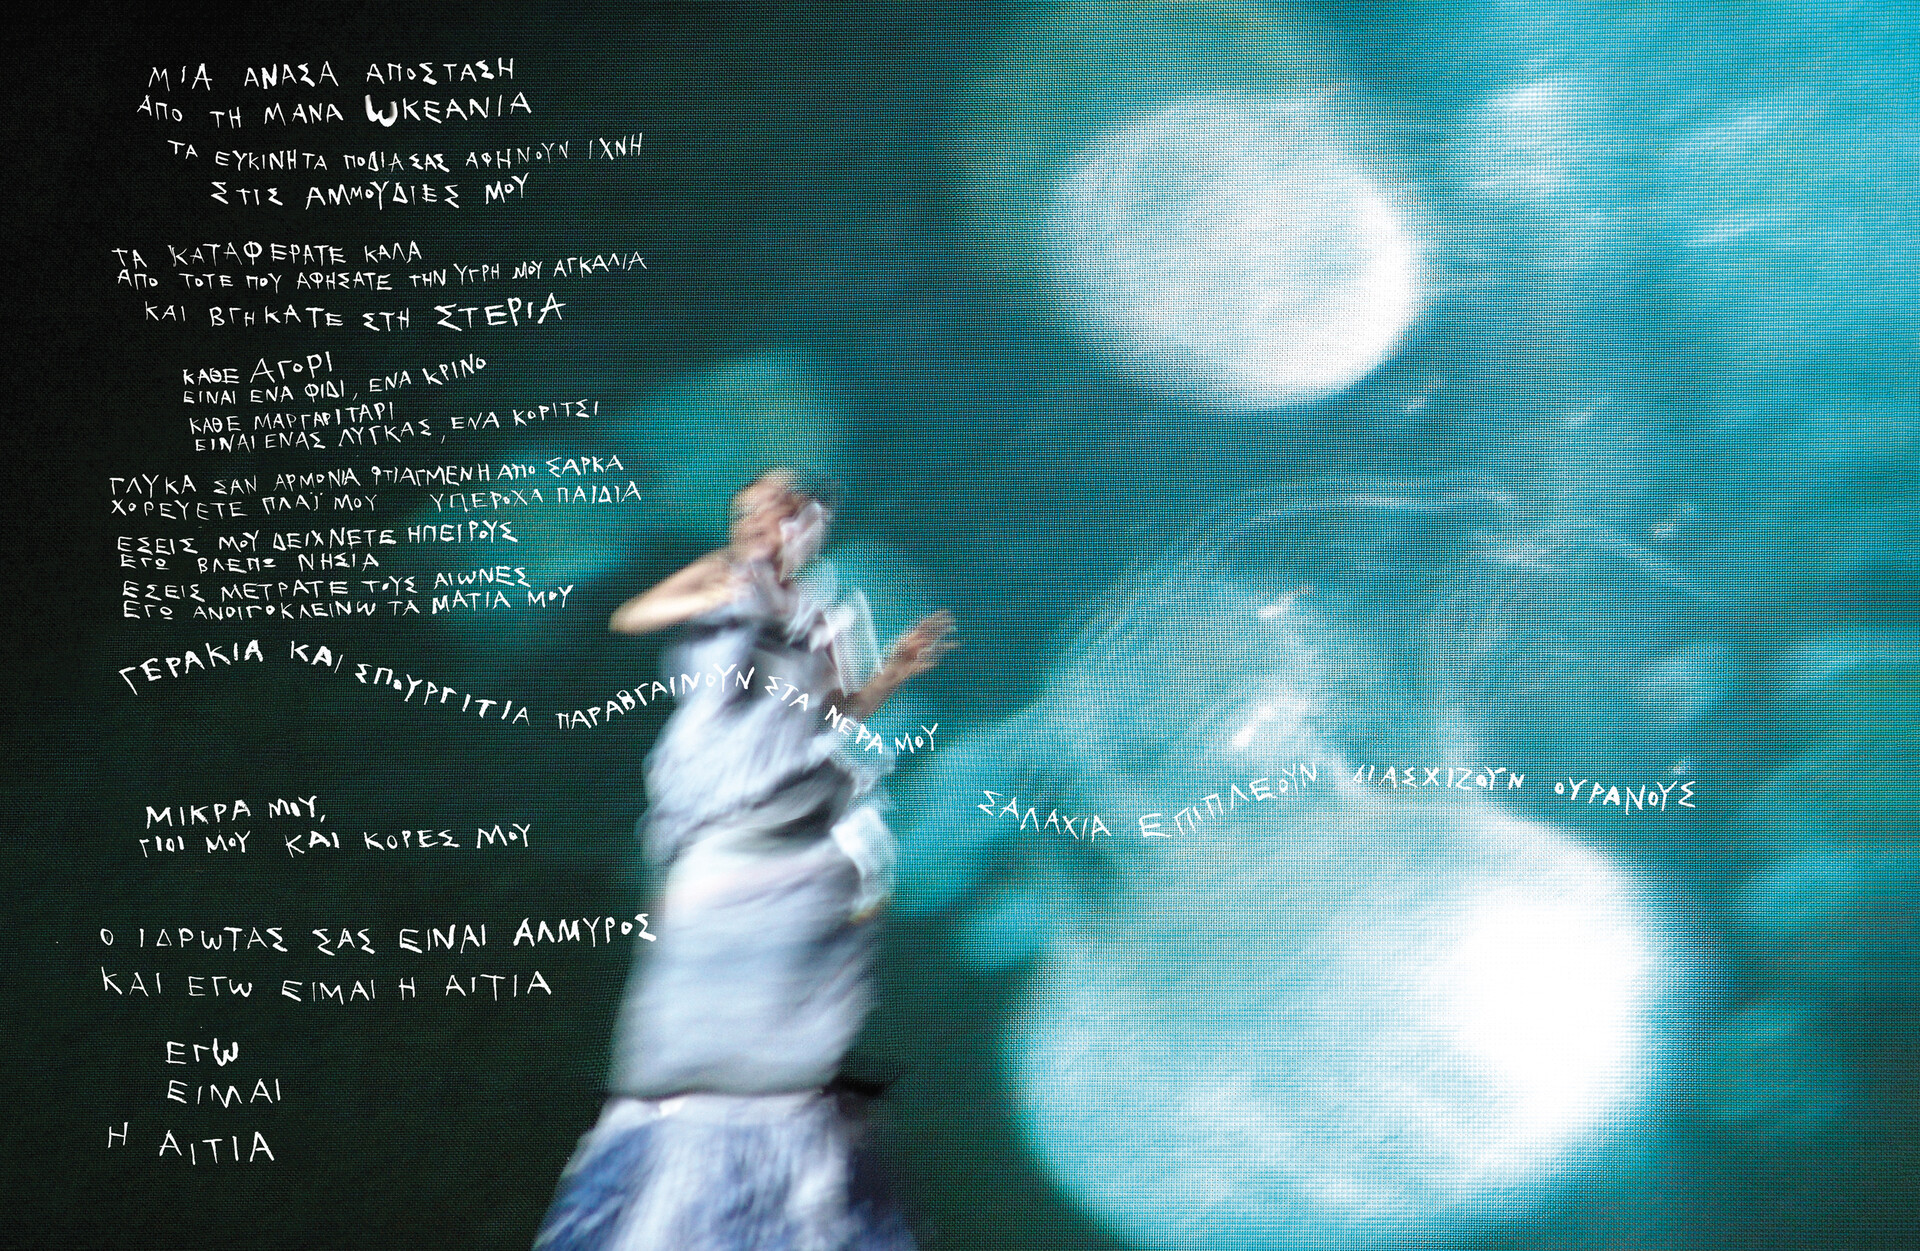 ΜΙΑ ΑΝΑΣΑ ΑΠΟΣΤΑΣΗ
ΑΠΟ ΤΗ ΜΑΝΑ ΩΚΕΑΝΙΑ
ΤΑ ΕΥΚΙΝΗΤΑ ΠΟΔΙΑ ΣΑΣ ΑΦΗΝΟΥΝ ΙΧΝΗ
ΣΤΙΣ ΑΜΜΟΥΔΙΕΣ ΜΟΥ
ΤΑ ΚΑΤΑΦΕΡΑΤΕ ΚΑΛΑ
ΑΠΟ ΤΟΤΕ ΠΟΥ ΑΦΗΣΑΤΕ ΤΗΝ ΥΓΡΗ ΜΟΥ ΑΓΚΑΛΙΑ
ΚΑΙ ΒΓΗΚΑΤΕ ΣΤΗ ΣΤΕΡΙΑ
ΚΑΘΕ ΑΓΟΡΙ
ΕΙΝΑΙ ΕΝΑ ΦΙΔΙ, ΕΝΑ ΚΡΙΝΟ
ΚΑΘΕ ΜΑΡΓΑΡΙΤΑΡΙ
ΕΙΝΑΙ ΕΝΑΣ ΛΥΓΚΑΣ, ΕΝΑ ΚΟΡΙΤΣΙ
ΓΛΥΚΑ ΣΑΝ ΑΡΜΟΝΙΑ ΦΤΙΑΓΜΕΝΗ ΑΠΟ ΣΑΡΚΑ
ΧΟΡΕΥΕΤΕ ΠΛΑΪ ΜΟΥ ΥΠΕΡΟΧΑ ΠΑΙΔΙΑ
ΕΣΕΙΣ ΜΟΥ ΔΕΙΧΝΕΤΕ ΗΠΕΙΡΟΥΣ
ΕΓΩ ΒΛΕΠΩ ΝΗΣΙΑ
ΕΣΕΙΣ ΜΕΤΡΑΤΕ ΤΟΥΣ ΑΙΩΝΕΣ
ΕΓΩ ΑΝΟΙΓΟΚΛΕΙΝΩ ΤΑ ΜΑΤΙΑ ΜΟΥ
ΓΕΡΑΚΙΑ ΚΑΙ ΣΠΟΥΡΓΙΤΙΑ ΠΑΡΑΒΓΑΙΝΟΥΝ ΣΤΑ ΝΕΡΑ ΜΟΥ
ΣΑΛΑΧΙΑ ΕΠΙΠΛΕΟΥΝ ΔΙΑΣΧΙΖΟΥΝ ΟΥΡΑΝΟΥΣ
ΜΙΚΡΑ ΜΟΥ,
ΓΙΟΙ ΜΟΥ ΚΑΙ ΚΟΡΕΣ ΜΟΥ
Ο ΙΔΡΩΤΑΣ ΣΑΣ ΕΙΝΑΙ ΑΛΜΥΡΟΣ
ΚΑΙ ΕΓΩ ΕΙΜΑΙ Η ΑΙΤΙΑ
ΕΓΩ
ΕΙΜΑΙ
Η ΑΙΤΙΑ